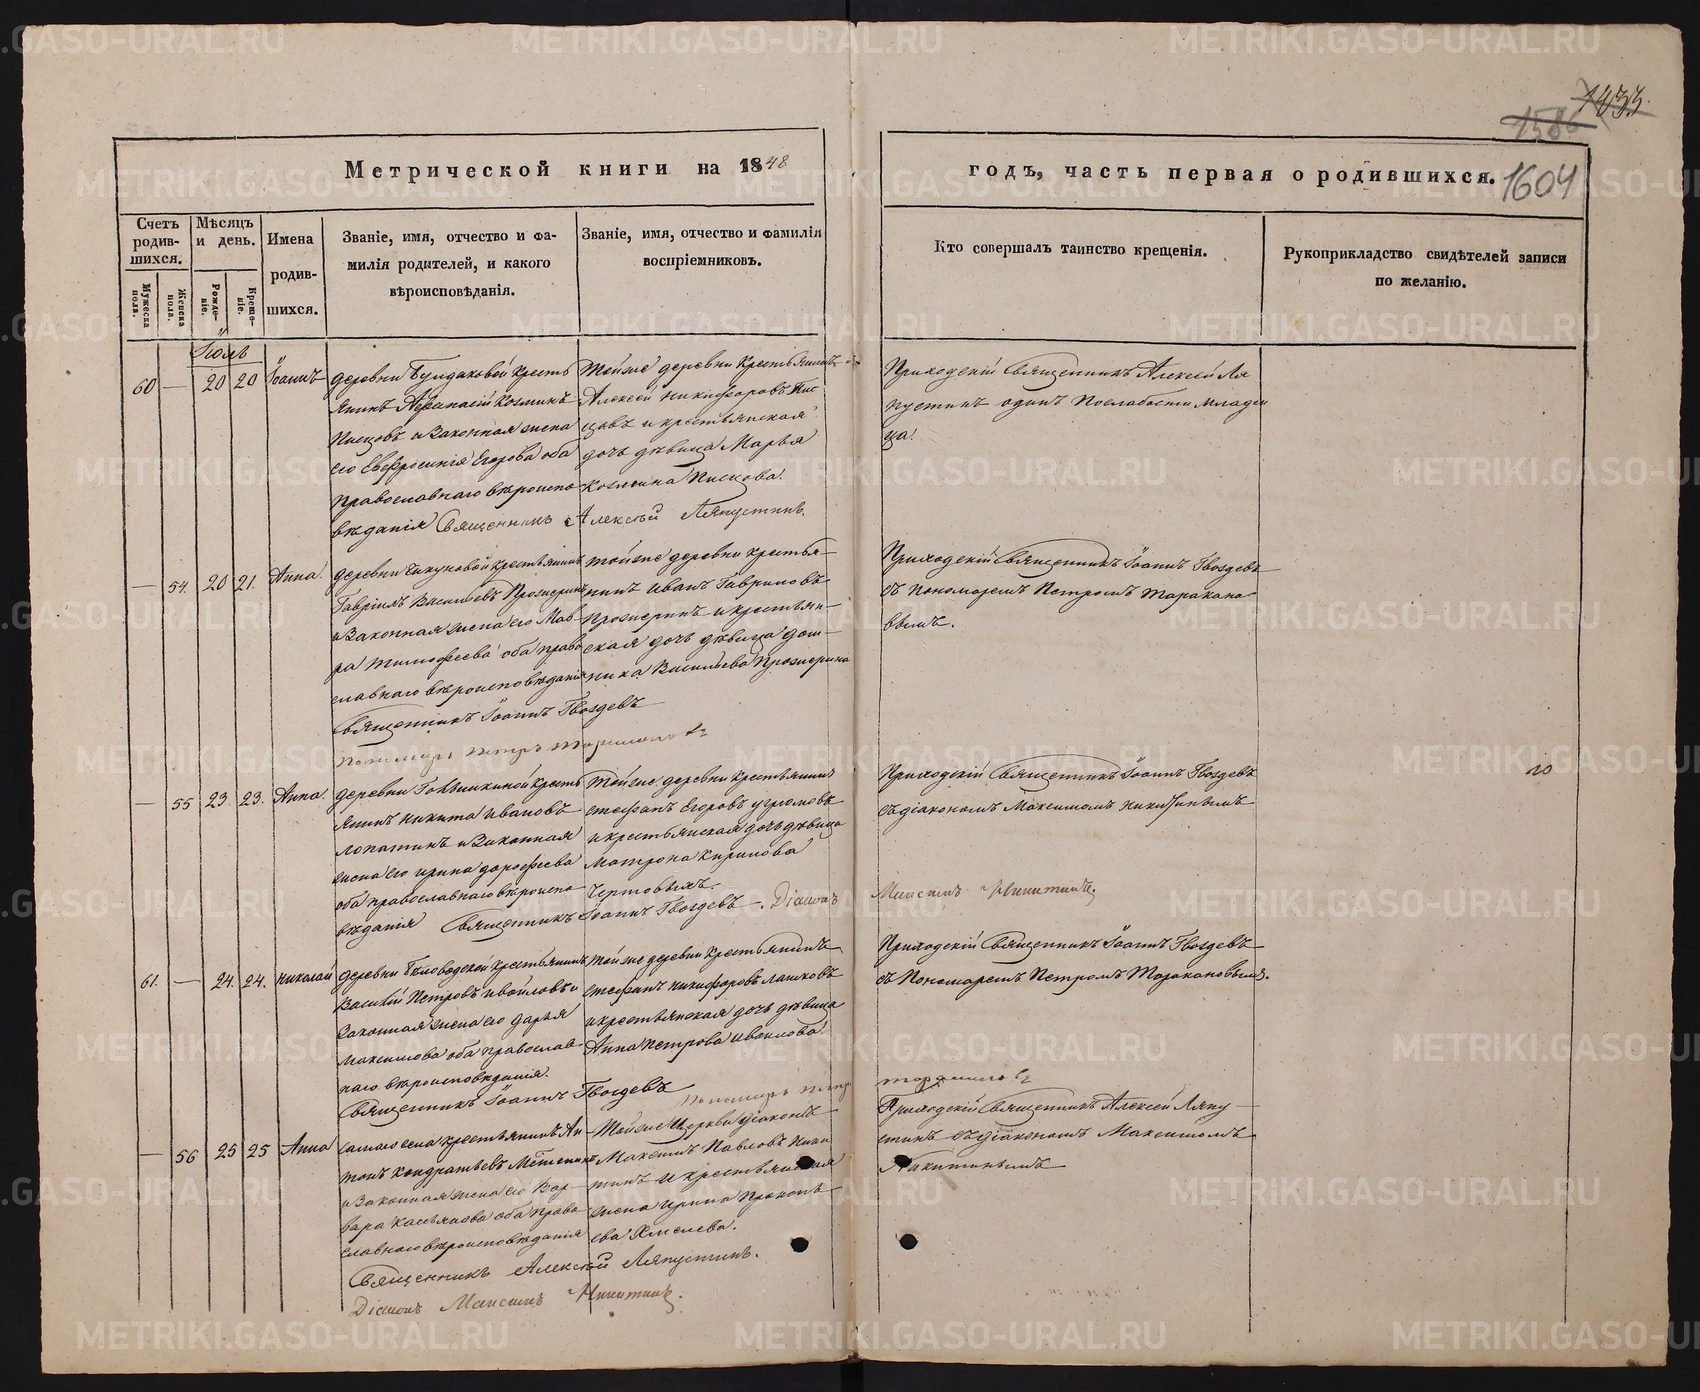 1433.
1586
1604
Метрической книги на 1848
годъ, часть первая о родившихся.
Счетъ родившихся.
Мужеска пола.
Женска пола.
Мѣсяцъ и день.
Рожденіе.
Крещеніе.
Имена родившихся.
Званіе, имя, отчество и фамилія родителей, и какого вѣроисповѣданія.
Званіе, имя, отчество и фамилія воспріемниковъ.
Кто совершалъ таинство крещенія.
Рукоприкладство свидѣтелей записи по желанію.
Іюль
60 — 20 20 Іоаннъ
деревни Бундаковой кресть
янинъ Афанасій Козминъ
Писцовъ и Законная жена
его Евфросинія Егорова оба
Православнаго вѣроиспо
вѣданія Священникъ Алексѣй Ляпустинъ
Тойже деревни Крестьянинъ
Алексей Никифоровъ Пис
цовъ и крестьянская
дочь дѣвица Марья
Козмина Писцова.
Приходскій Священникъ Алексей Ля
пустинъ одинъ Послабости младен
ца.
— 54. 20 21. Анна.
деревни Чикуновой крестьянинъ
Гавріилъ Васильевъ Прожеринъ
и Законная жена его Мав
ра Тимофеева оба право
славнаго вѣроисповѣданія
Священникъ Іоаннъ Гвоздевъ
Пономарь Петръ Таракановъ
тойже деревни крестья
нинъ Иванъ Гавриловъ
Прожеринъ и крестьян
ская дочь дѣвица Дом
ника Васильева Прожерина
Приходскій Священникъ Іоаннъ Гвоздевъ
съ пономаремъ Петромъ Таракано
вымъ.
— 55 23 23. Анна.
деревни Говынкиной Кресть
янинъ Никита Ивановъ
Лопатинъ и Законная
жена его Ирина Дорофеева
оба православнаго вѣроиспо
вѣданія Священникъ Іоаннъ Гвоздевъ. Діаконъ Максимъ Никитинъ.
Тойже деревни Крестьянинъ
Стефанъ Егоровъ Угрюмовъ
и крестьянская дочь дѣвица
Матрона Кирилова
Чертовыхъ.
Приходскій Священникъ Іоаннъ Гвоздевъ
съ діакономъ Максимомъ Никитинымъ
61. — 24. 24. Николай
деревни Бѣловодской Крестьянинъ
Василій Петровъ Ивойловъ и
Законная жена его Дарья
Максимова оба православ
наго вѣроисповѣданія.
Священникъ Іоаннъ Гвоздевъ Пономарь Петръ Таракановъ
Тойже деревни Крестьянинъ
Стефанъ Никифоровъ Лашковъ
и крестьянская дочь дѣвица
Анна Петрова Ивойлова.
Приходскій Священникъ Іоаннъ Гвоздевъ
съ Пономаремъ Петромъ Таракановымъ.
— 56 25 25 Анна
самаго села крестьянинъ Ан
тонъ Кондратьевъ
и Законная жена его Вар
вара Касьянова оба право
славнаго вѣроисповѣданія
Священникъ Алексѣй Ляпустинъ.
Діаконъ Максимъ Никитинъ.
Тойже Церкви діаконъ
Максимъ Павловъ Ники
тинъ и крестьянская
жена Ирина Прокопь
ева Хмелева.
Приходскій Священникъ Алексей Ляпу
стинъ съ діакономъ Максимомъ
Никитинымъ
METRIKI.GASO-URAL.RU